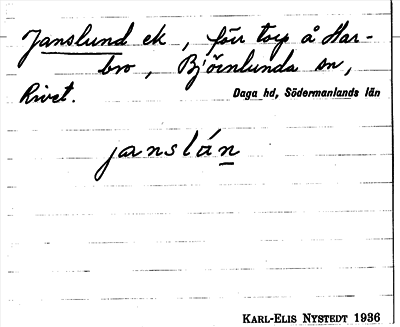 Janslund ek, förr torp å Har-
bro, Björnlunda sn,
Rivet.
Daga hd, Södermanlands län
janslán
KARL-ELIS NYSTEDT 1936